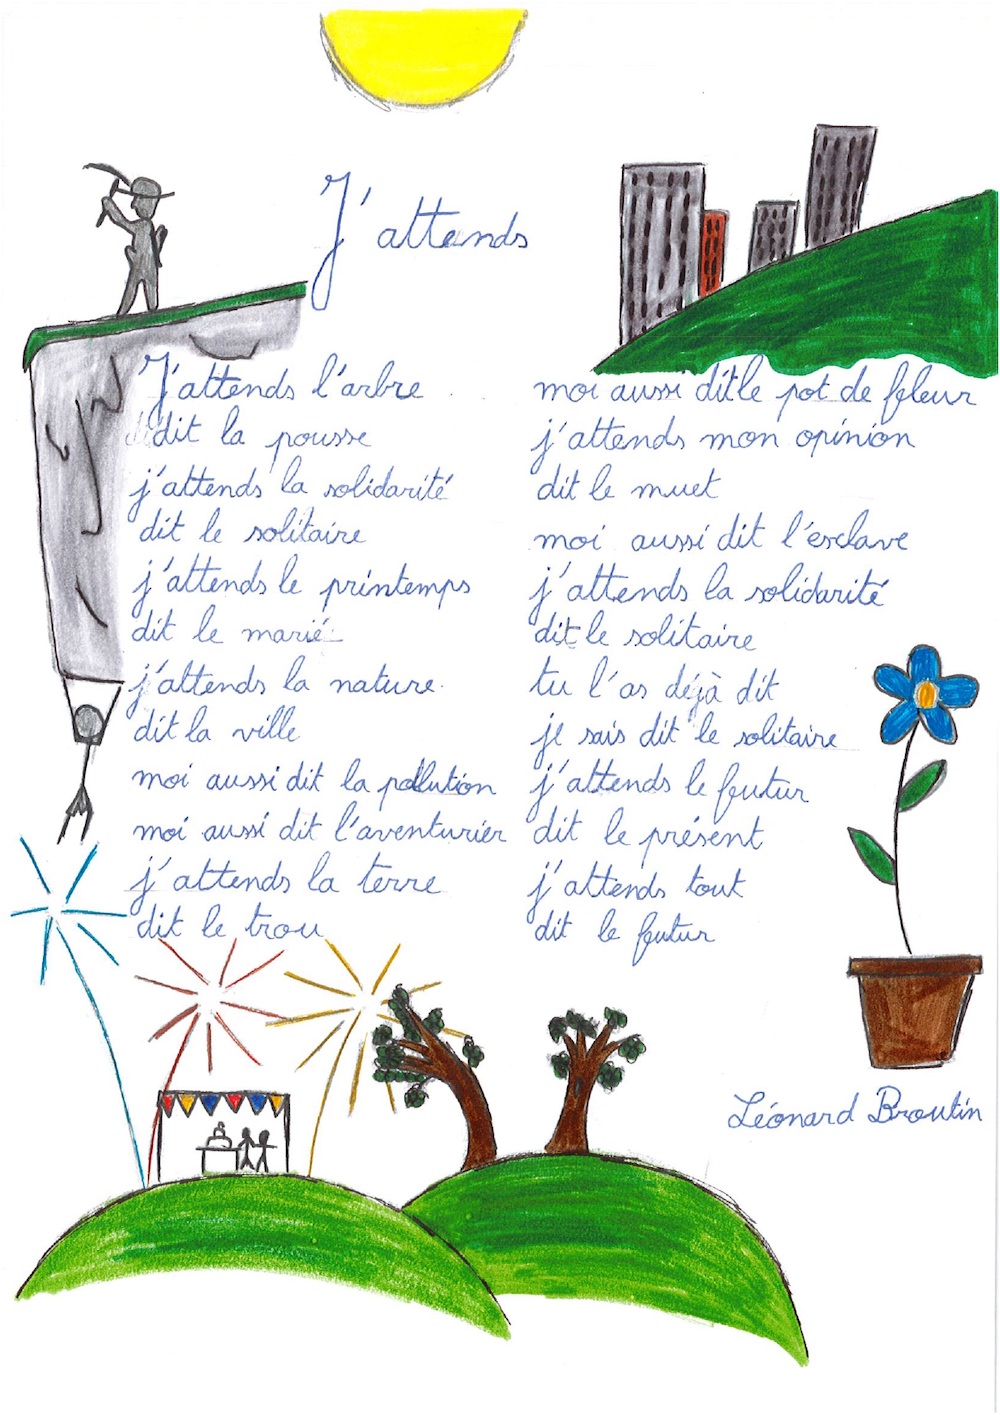 J'attends
J'attends l'arbre
dit la pousse
j'attends la solidarité
dit le solitaire
j'attends le printemps
dit le marié
j'attends la nature
dit la ville
moi aussi dit la pollution
moi aussi dit l'aventurier
j'attends la terre
dit le trou
moi aussi dit le pot de feleur
j'attends mon opinion
dit le muet
moi aussi dit l'esclave
j'attends la solidarité
dit le solitaire
tu l'as déjà dit
je sais dit le solitaire
j'attends le feutur
dit le présent
j'attends tout
dit le feutur
Léonard Broutin